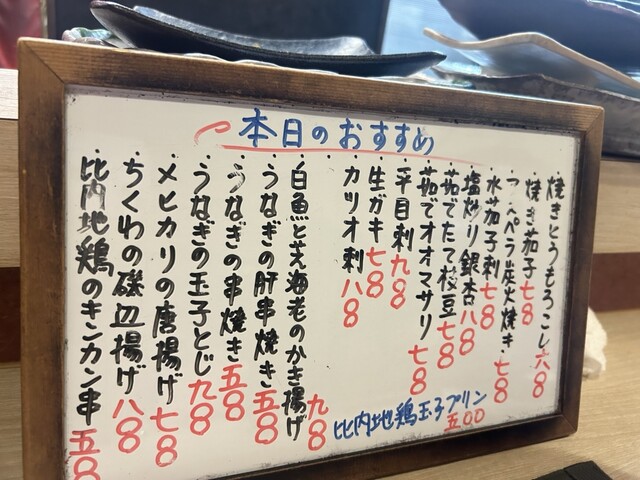 本日のおすすめ
・焼きとうもろこし 六8
・焼き茄子 七8
炭火焼き 七8
・水茄子刺 七8
・塩炒り銀杏 八8
・茹でたて枝豆 七8
・茹でオオマサリ 七8
・平目刺 九8
・生ガキ 七8
・カツオ刺 八8
・白魚と芝海老のかき揚げ 九8
・うなぎの肝串焼き 五8
・うなぎの串焼き 五8
・うなぎの玉子とじ 九8
・メヒカリの唐揚げ 七8
・ちくわの磯辺揚げ 八8
・比内地鶏のキンカン串 五8
比内地鶏玉子プリン
五00